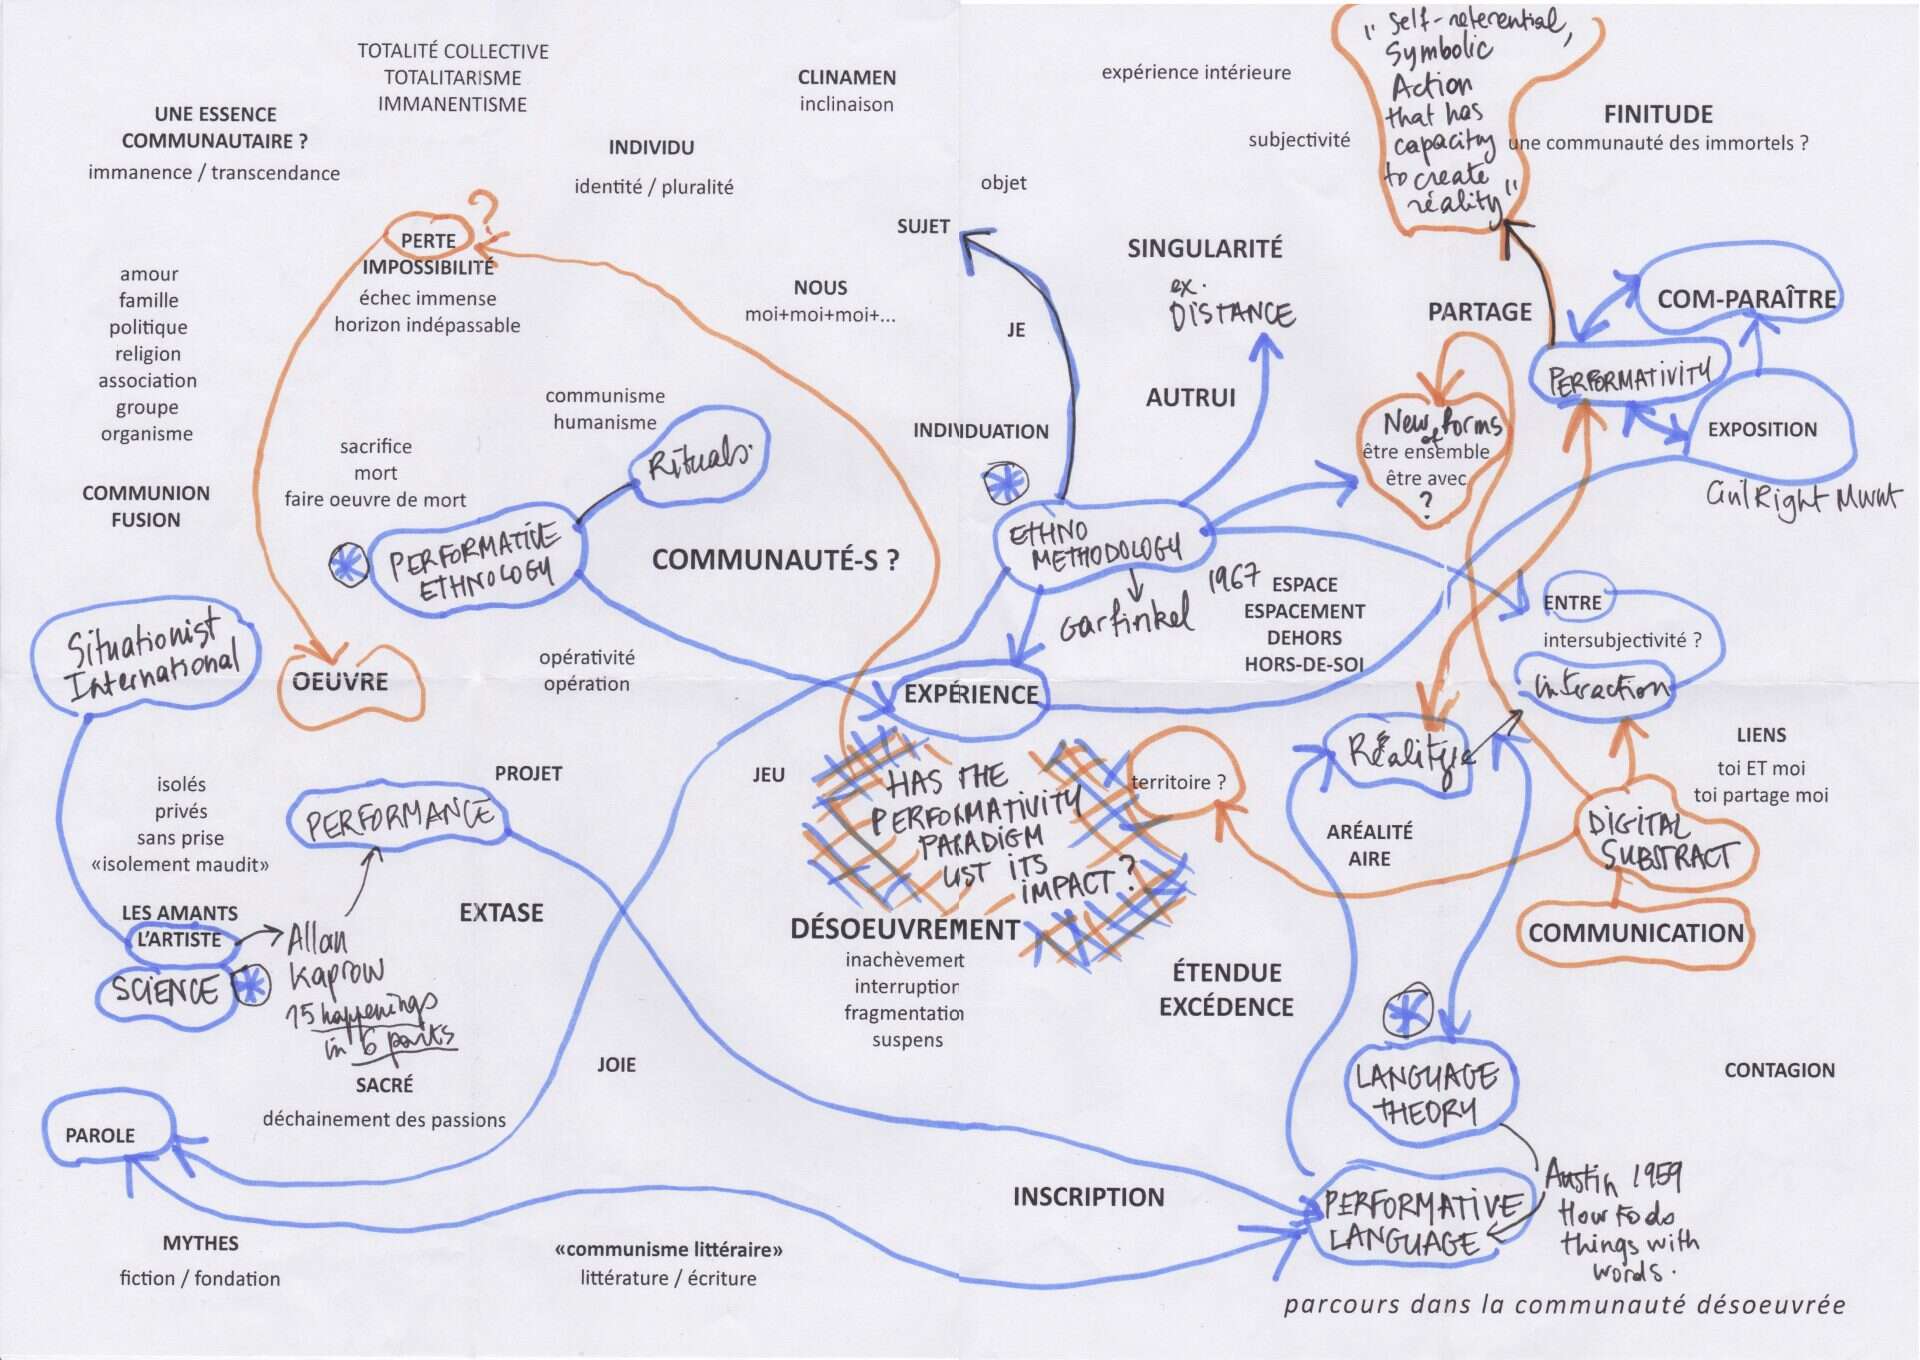 TOTALITÉ COLLECTIVE
TOTALITARISME
IMMANENTISME
CLINAMEN
inclinaison
expérience intérieure
"Self-referential,
Symbolic
Action
that has
capacity
to create
réality"
UNE ESSENCE
COMMUNAUTAIRE ?
immanence / transcendance
INDIVIDU
identité / pluralité
subjectivité
FINITUDE
une communauté des immortels ?
objet
SUJET
PERTE
?
IMPOSSIBILITÉ
échec immense
horizon indépassable
SINGULARITÉ
ex.
DISTANCE
NOUS
moi+moi+moi+...
JE
PARTAGE
COM-PARAÎTRE
PERFORMATIVITY
amour
famille
politique
religion
association
groupe
organisme
communisme
humanisme
Rituals.
AUTRUI
INDIVIDUATION
New forms
of
être ensemble
être avec
?
EXPOSITION
Civil Right Mvnt
sacrifice
mort
faire oeuvre de mort
COMMUNION
FUSION
PERFORMATIVE
ETHNOLOGY
COMMUNAUTÉ-S ?
ETHNO
METHODOLOGY
Garfinkel
1967
ESPACE
ESPACEMENT
DEHORS
HORS-DE-SOI
ENTRE
intersubjectivité ?
interaction
Situationist
International
OEUVRE
opérativité
opération
EXPÉRIENCE
LIENS
toi ET moi
toi partage moi
isolés
privés
sans prise
«isolement maudit»
PROJET
PERFORMANCE
JEU
HAS THE
PERFORMATIVITY
PARADIGM
LOST ITS
IMPACT?
territoire ?
ARÉALITÉ
AIRE
DIGITAL
SUBSTRACT
COMMUNICATION
LES AMANTS
L'ARTISTE
SCIENCE
Allan
Kaprow
happenings
in 6 parts
EXTASE
DÉSOEUVREMENT
inachèvement
interruption
fragmentation
suspens
ÉTENDUE
EXCÉDENCE
SACRÉ
déchainement des passions
JOIE
LANGUAGE
THEORY
CONTAGION
PAROLE
INSCRIPTION
PERFORMATIVE
LANGUAGE
Austin 1959
How to do
things with
words.
MYTHES
fiction / fondation
«communisme littéraire»
littérature / écriture
parcours dans la communauté désoeuvrée